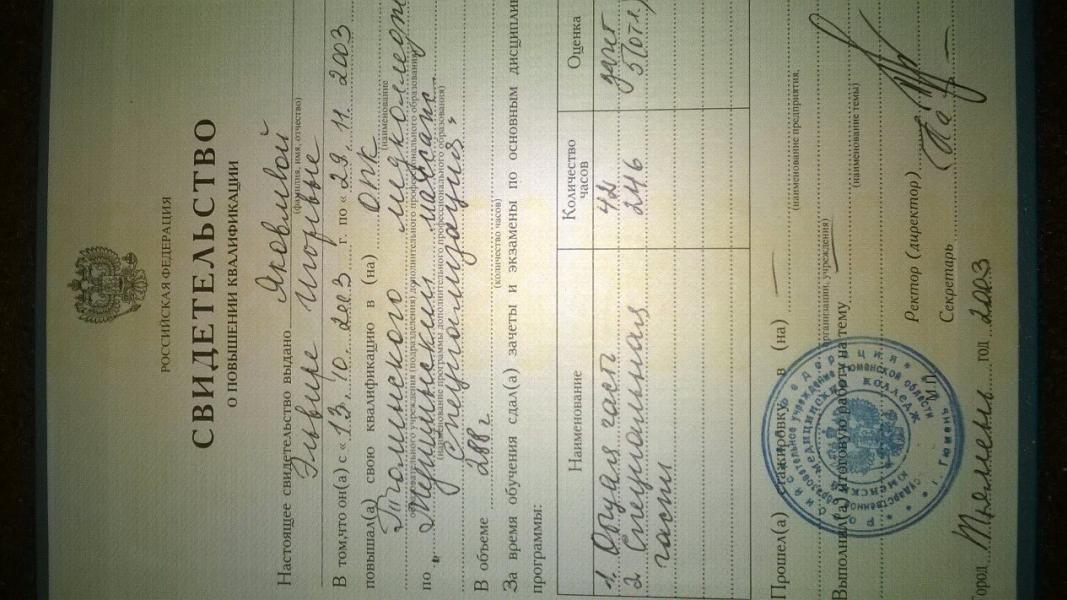 РОССИЙСКАЯ ФЕДЕРАЦИЯ
СВИДЕТЕЛЬСТВО
О ПОВЫШЕНИИ КВАЛИФИКАЦИИ
Настоящее свидетельство выдано Яковлевой
(фамилия, имя, отчество)
Эльвире Игоревне
В том,что он(а) с « 13. 10. 2003 г. по « 29. 11. 2003
повышал(а) свою квалификацию в (на) ОПК
(наименование
Тюменского медколледжа
образовательного учреждения (подразделения) дополнительного профессионального образования)
по „Медицинский массаж
(наименование программы дополнительного профессионального образования)
Специализация”
В объеме 288 ч
(количество часов)
За время обучения сдал(а) зачеты и экзамены по основным дисциплин
программы:
Наименование Количество часов Оценка
1. Общая часть 42 зачет
2 Специальная 246 5(отл.)
часть
Прошел(а) стажировку в (на) —
(наименование предприятия,
организации, учреждения)
Выполнил(а) итоговую работу на тему
(наименование темы)
Ректор (директор)
Секретарь
М.П.
Город Тюмень год 2003